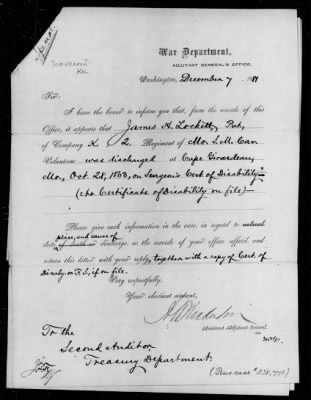 War Department,
ADJUTANT GENERAL'S OFFICE,
Washington, December 7, 1889
Sir:
I have the honor to inform you that, from the records of this
Office, it appears that James A. Lockett, Pvt,
of Company K. 2. Regiment of Mo. S. M. Cav.
Volunteers was discharged at Cape Girardeau,
Mo., Oct 28, 1863, on Surgeon's Cert of Disability
(No Certificate of Disability on file)
Please give such information in the case, in regard to actual
place, and cause of
date of death or discharge, as the records of your office afford, and
return this letter with your reply, together with a copy of Cert. of
Disab'y or F. S., if on file.
Very respectfully,
Your obedient servant,
Assistant Adjutant General.
To the
Second Auditor
Treasury Department.